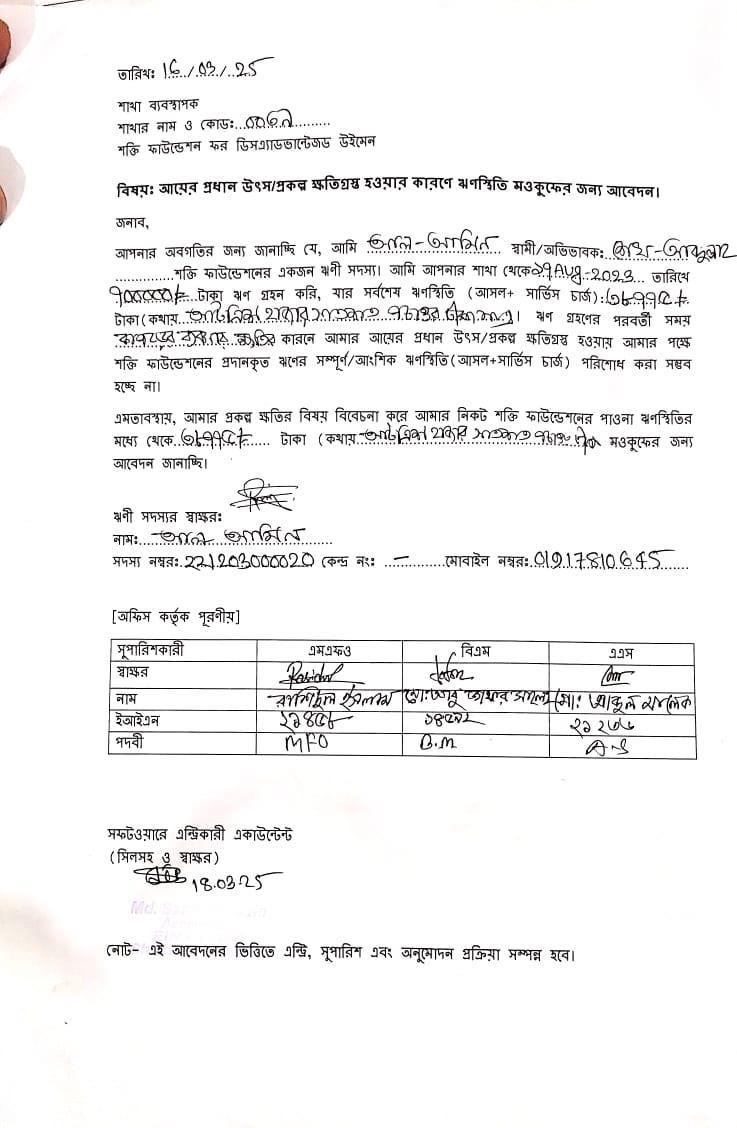 তারিখ: 16/03/25
শাখা ব্যবস্থাপক
শাখার নাম ও কোড:
শক্তি ফাউন্ডেশন ফর ডিসএ্যাডভান্টেজড উইমেন
বিষয়: আয়ের প্রধান উৎস/প্রকল্প ক্ষতিগ্রস্ত হওয়ার কারণে ঋণস্থিতি মওকুফের জন্য আবেদন।
জনাব,
আপনার অবগতির জন্য জানাচ্ছি যে, আমি আল-আমিন স্বামী/অভিভাবক:
শক্তি ফাউন্ডেশনের একজন ঋণী সদস্য। আমি আপনার শাখা থেকে Aug-2023 তারিখে
টাকা ঋণ গ্রহন করি, যার সর্বশেষ ঋণস্থিতি (আসল+ সার্ভিস চার্জ):
টাকা (কথায় হাজার সাতশত ঋণ গ্রহণের পরবর্তী সময়
কাপড়ের ক্ষতির কারনে আমার আয়ের প্রধান উৎস/প্রকল্প ক্ষতিগ্রস্ত হওয়ায় আমার পক্ষে
শক্তি ফাউন্ডেশনের প্রদানকৃত ঋণের সম্পূর্ণ/আংশিক ঋণস্থিতি (আসল+সার্ভিস চার্জ) পরিশোধ করা সম্ভব
হচ্ছে না।
এমতাবস্থায়, আমার প্রকল্প ক্ষতির বিষয় বিবেচনা করে আমার নিকট শক্তি ফাউন্ডেশনের পাওনা ঋণস্থিতির
মধ্যে থেকে টাকা (কথায় হাজার সাতশত মওকুফের জন্য
আবেদন জানাচ্ছি।
ঋণী সদস্যর স্বাক্ষর:
নাম: আল আমিন
সদস্য নম্বর: 221203000020 কেন্দ্র নং: – মোবাইল নম্বর: 01917810645
[অফিস কর্তৃক পূরণীয়]
সুপারিশকারী এমএফও বিএম এএস
স্বাক্ষর
নাম রাশিদুল ইসলাম মো: আবু মো: আব্দুল মালেক
ইআইএন
পদবী MFO B.M A.S
সফটওয়ারে এন্ট্রিকারী একাউন্টেন্ট
(সিলসহ ও স্বাক্ষর)
18.03.25
নোট- এই আবেদনের ভিত্তিতে এন্ট্রি, সুপারিশ এবং অনুমোদন প্রক্রিয়া সম্পন্ন হবে।